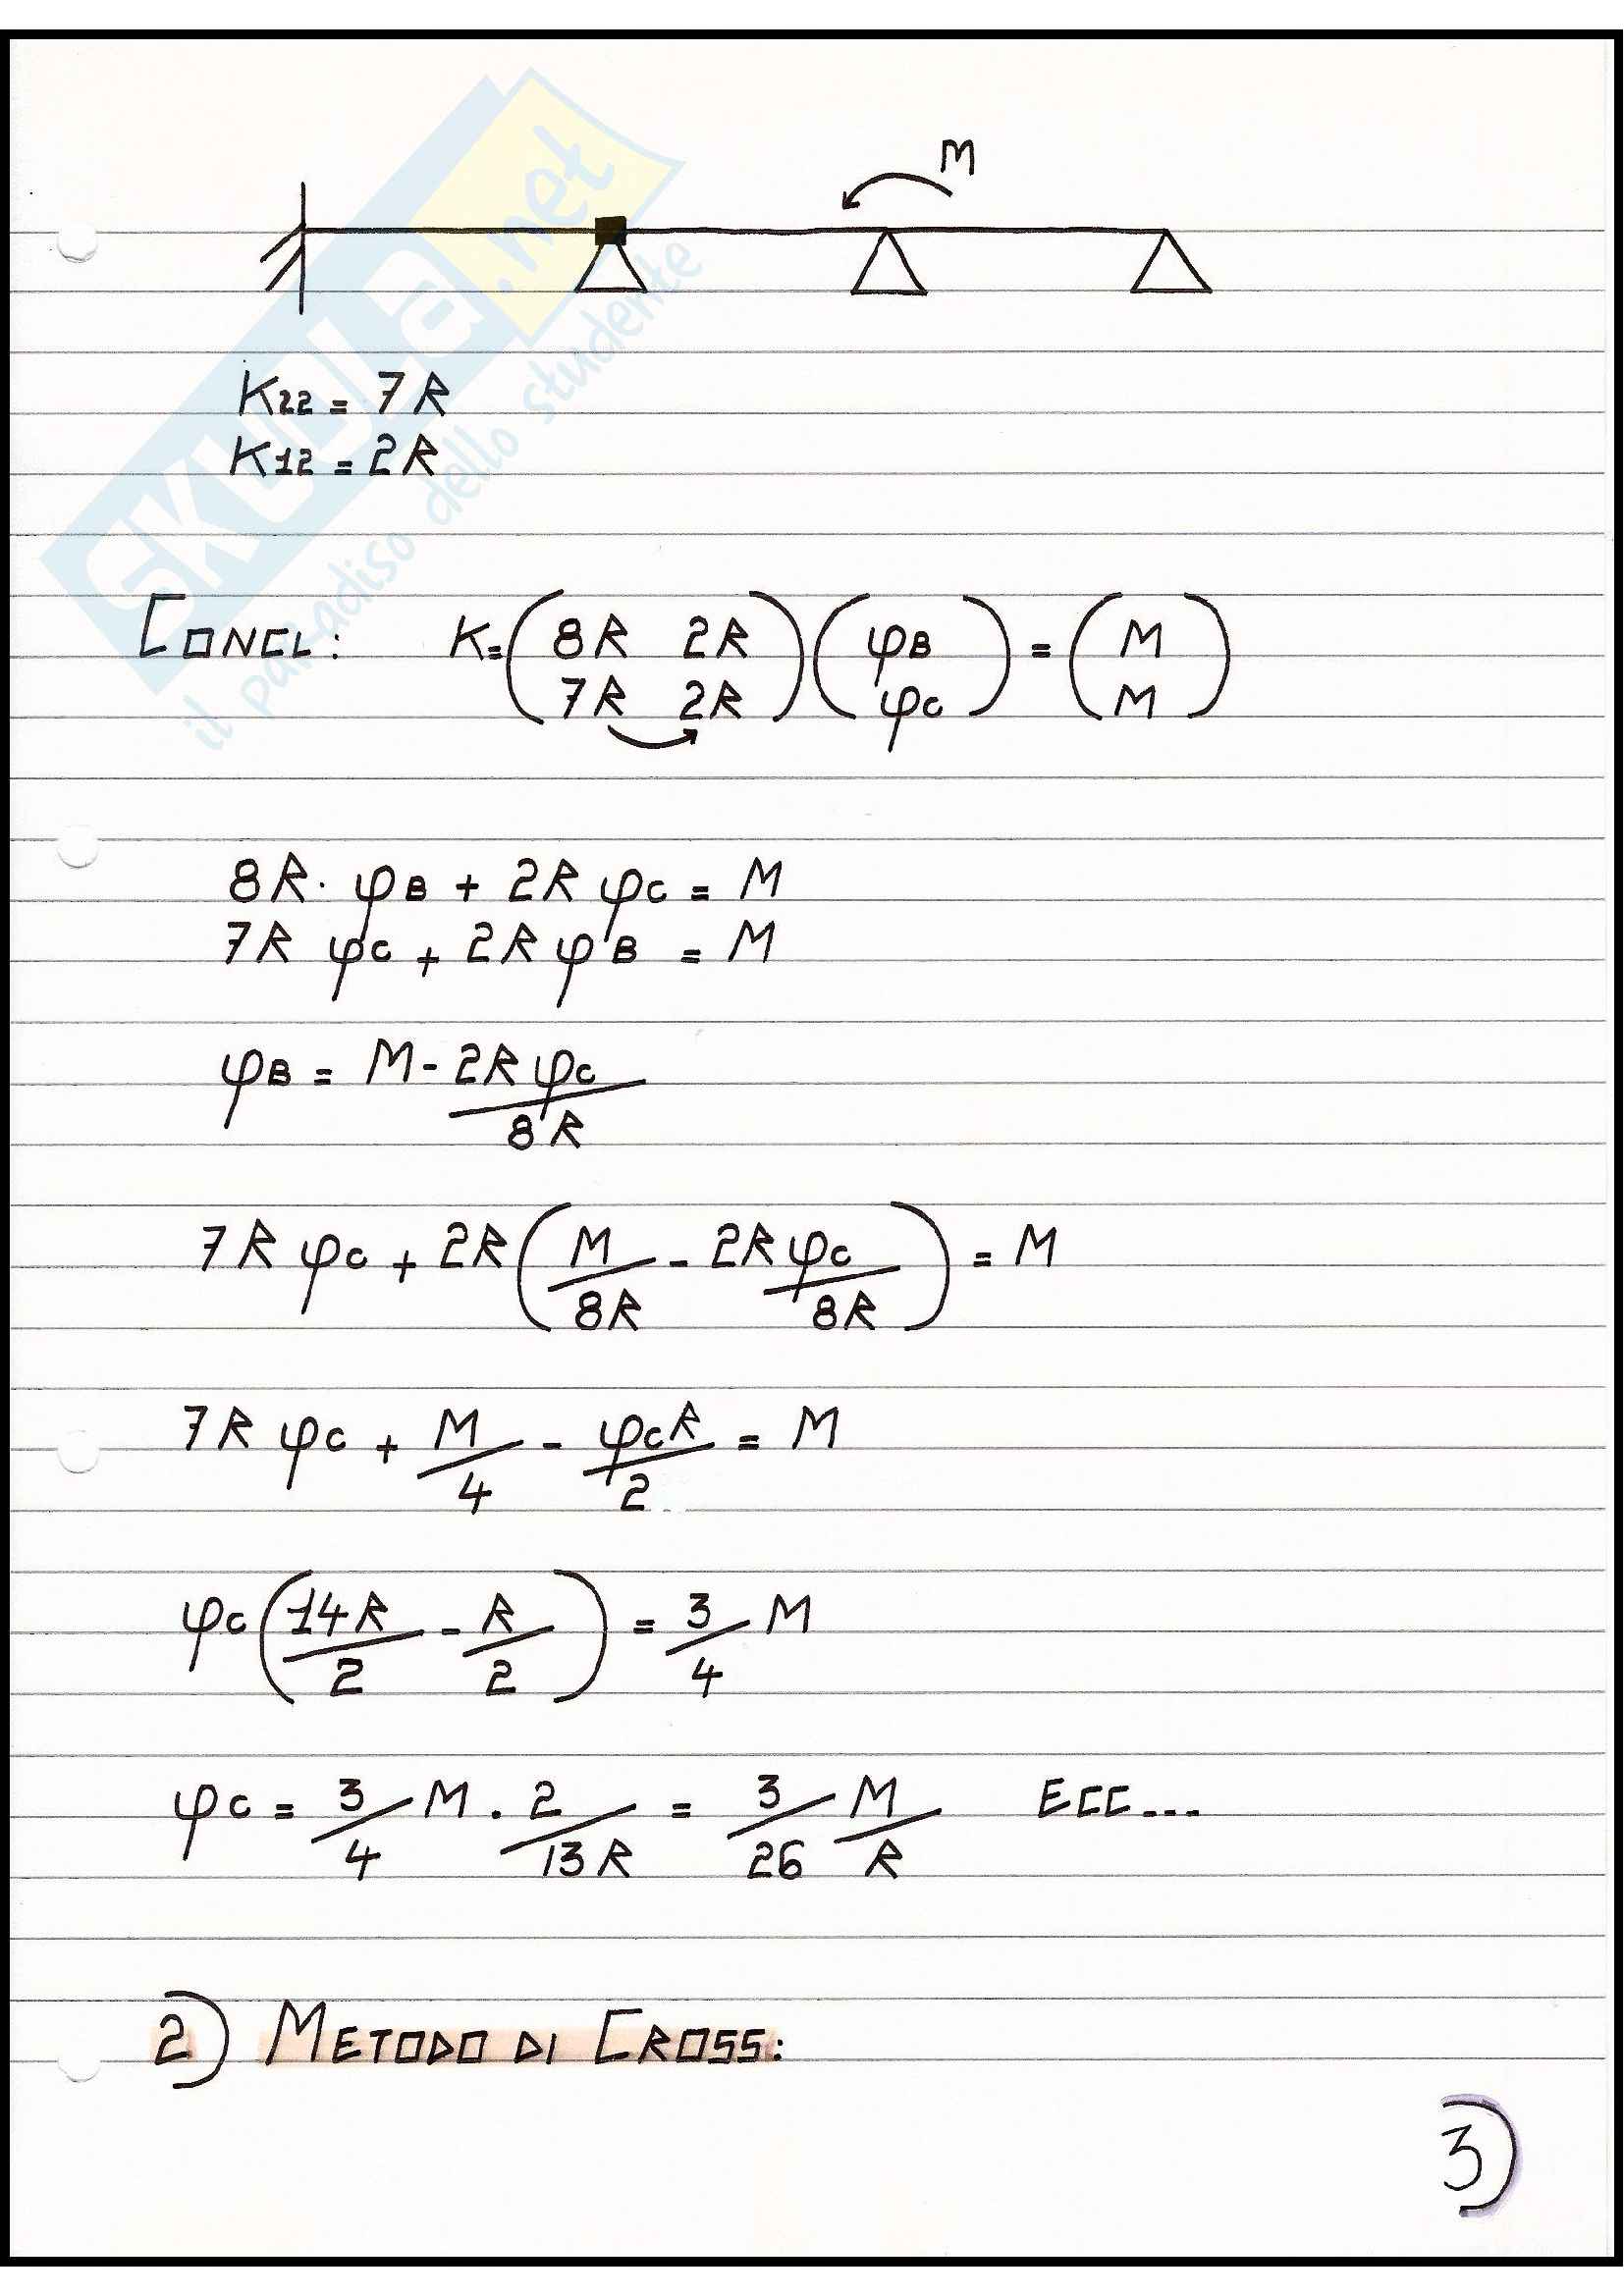 M
K22 = 7R
K12 = 2R
CONCL: K=(8R 2R)(φB) = (M)
(7R 2R)(φC) (M)
8R· φB + 2R φC = M
7R φC + 2R φB = M
φB = M - 2R φC / 8R
7R φC + 2R (M/8R - 2R φC/8R) = M
7R φC + M/4 - φC R/2 = M
φC (14R/2 - R/2) = 3/4 M
φC = 3/4 M . 2/13R = 3/26 M/R ECC...
2) METODO DI CROSS:
3)
SKUOLA.net
il paradiso dello studente